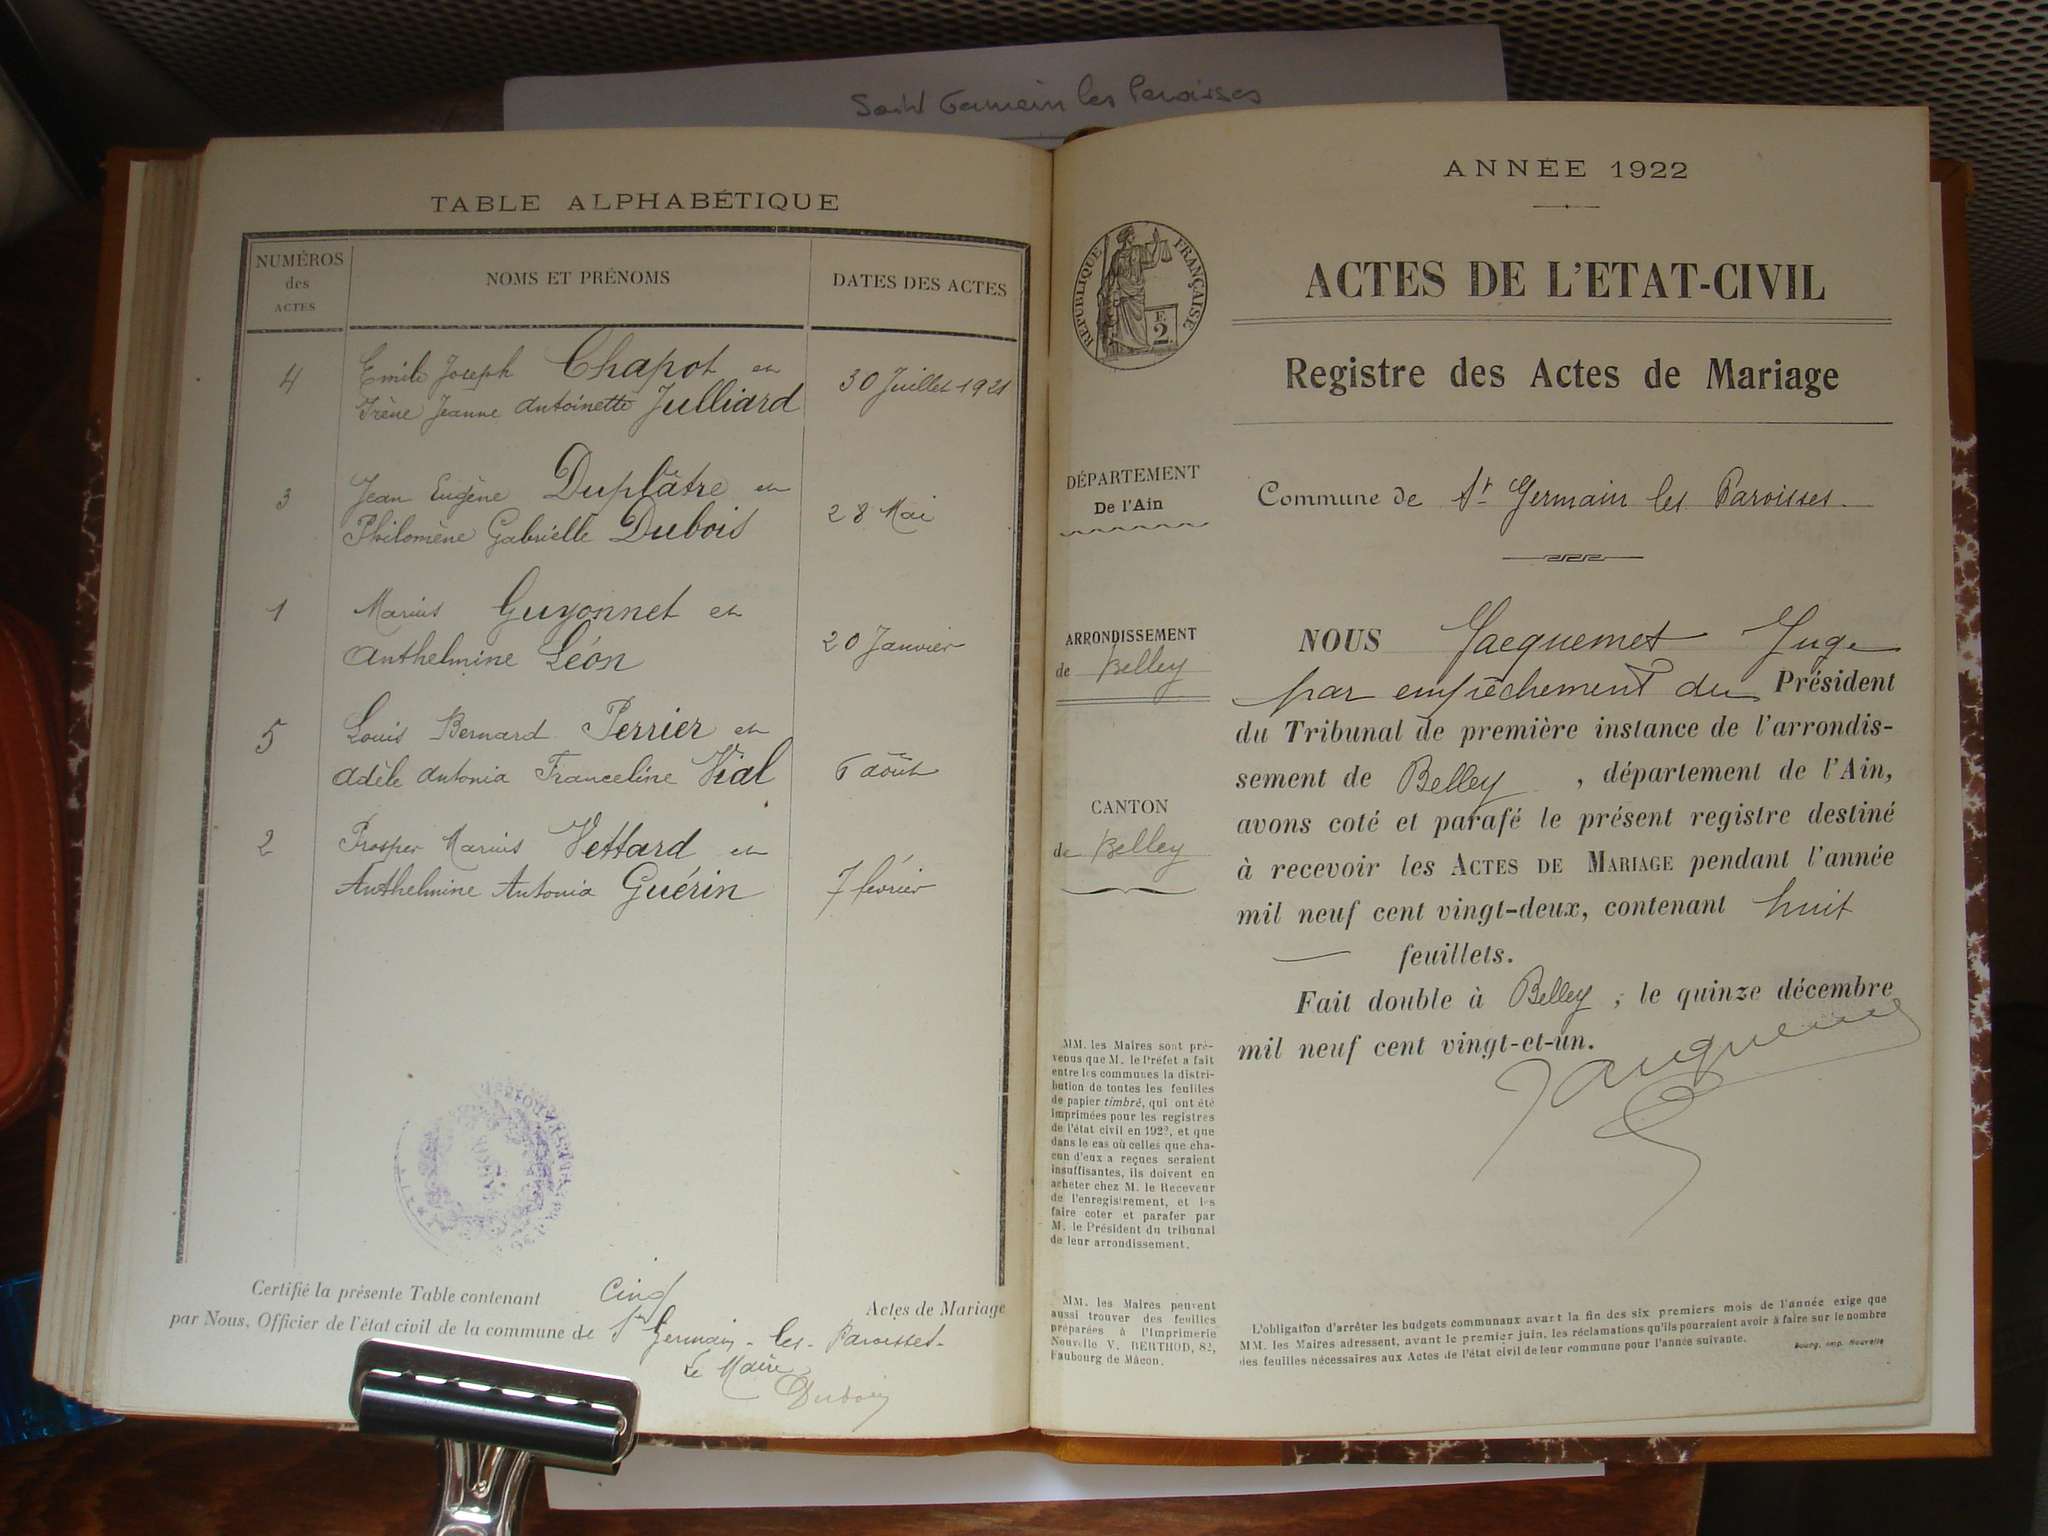 Saint Germain les Paroisses
TABLE ALPHABÉTIQUE
NUMÉROS
des
ACTES
NOMS ET PRÉNOMS
DATES DES ACTES
4
Emile Joseph Chapot et
Irène Jeanne Antoinette Julliard
30 Juillet 1921
3
Jean Eugène Duplâtre et
Philomène Gabrielle Dubois
28 Mai
1
Marius Guyonnet et
Anthelmine Léon
20 Janvier
5
Louis Bernard Perrier et
Adèle Antonia Franceline Vial
6 août
2
Prosper Marius Vettard et
Anthelmine Antonia Guérin
7 février
Certifié la présente Table contenant Cinq Actes de Mariage
par Nous, Officier de l'état civil de la commune de St Germain-les-Paroisses-
Le Maire
Dubois
ANNÉE 1922
RÉPUBLIQUE FRANÇAISE
F.
2
ACTES DE L'ETAT-CIVIL
Registre des Actes de Mariage
DÉPARTEMENT
De l'Ain
ARRONDISSEMENT
de Belley
CANTON
de Belley
MM. les Maires sont pré-
venus que M. le Préfet a fait
entre les communes la distri-
bution de toutes les feuilles
de papier timbré, qui ont été
imprimées pour les registres
de l'état civil en 1922, et que
dans le cas où celles que cha-
cun d'eux a reçues seraient
insuffisantes, ils doivent en
acheter chez M. le Receveur
de l'enregistrement, et les
faire coter et parafer par
M. le Président du tribunal
de leur arrondissement.
MM. les Maires peuvent
aussi trouver des feuilles
préparées à l'Imprimerie
Nouvelle V. BERTHOD, 82,
Faubourg de Mâcon.
Commune de St Germain les Paroisses
NOUS Jacquemet Juge
par empêchement du Président
du Tribunal de première instance de l'arrondis-
sement de Belley, département de l'Ain,
avons coté et parafé le présent registre destiné
à recevoir les ACTES DE MARIAGE pendant l'année
mil neuf cent vingt-deux, contenant huit
feuillets.
Fait double à Belley, le quinze décembre
mil neuf cent vingt-et-un.
Jacquemet
L'obligation d'arrêter les budgets communaux avant la fin des six premiers mois de l'année exige que
MM. les Maires adressent, avant le premier juin, les réclamations qu'ils pourraient avoir à faire sur le nombre
des feuilles nécessaires aux Actes de l'état civil de leur commune pour l'année suivante.
Bourg, imp. Nouvelle